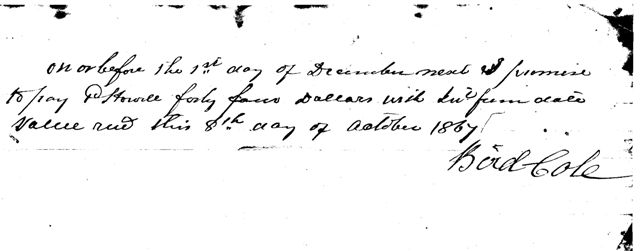 on or before the 1st day of December next I promise
to pay Howell forty four Dollars with Int from date
Value recd this 8th day of October 1867
Bird Cole